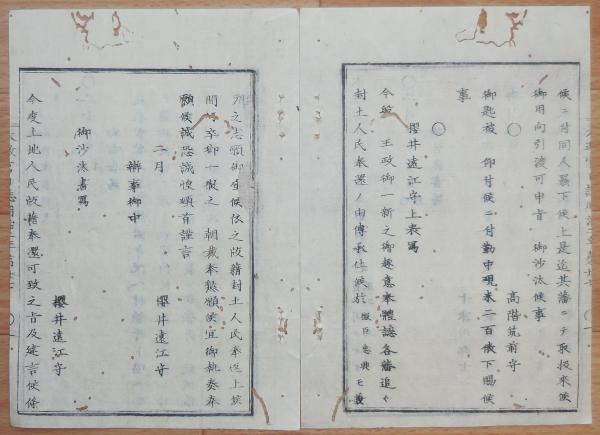 候ニ付同人罷下候上是迄其藩ニテ取扱来候
御用向引渡可申旨 御沙汰候事
高階筑前守
御匙被 仰付候ニ付勤中現米二百俵下賜候
事
〇
櫻井遠江守上表寫
今般 王政御一新之御趣意奉體認各藩追々
封土人民奉還ノ由傳承仕候於
之志願御座候依之版籍封土人民奉返上候
間何卒御一掬之 朝裁奉懇願候宜御執奏奉
願候誠恐誠惶頓首謹言
二月 櫻井遠江守
辦事御中
御沙汰書寫
櫻井遠江守
今度土地人民版籍奉還可致之旨及建言候條